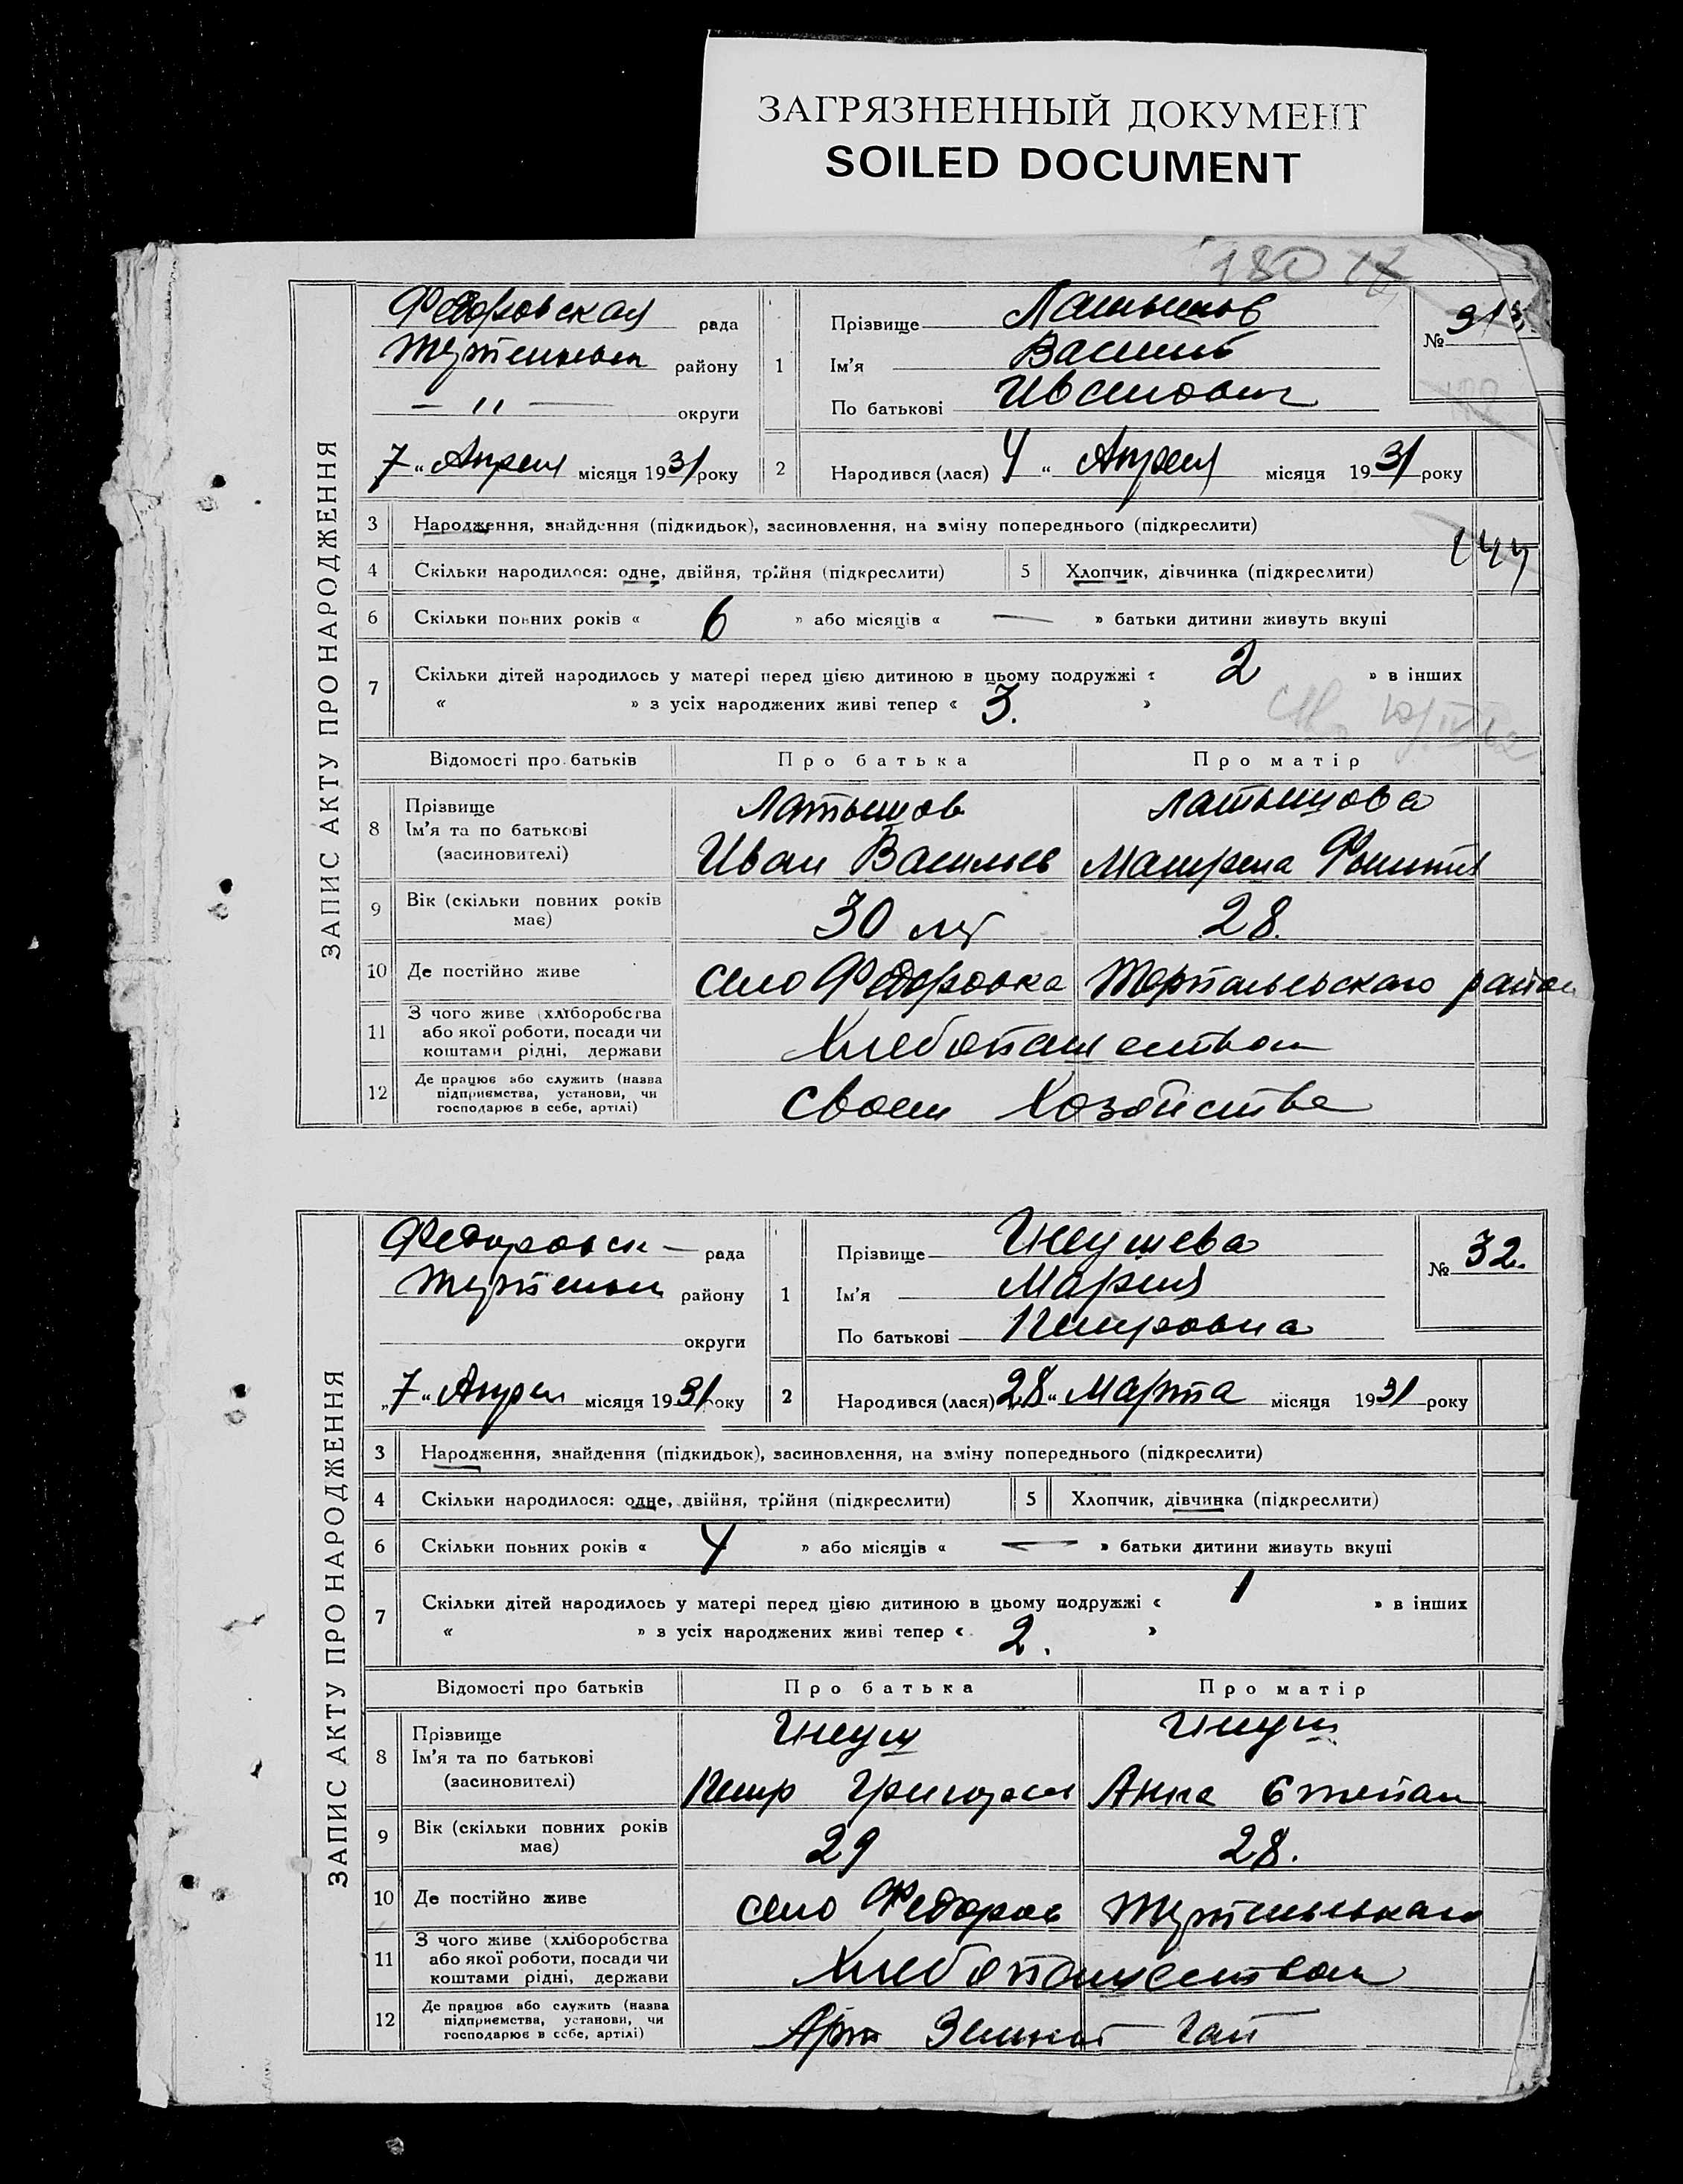 ЗАГРЯЗНЕННЫЙ ДОКУМЕНТ
SOILED DOCUMENT
180
ЗАПИС АКТУ ПРО НАРОДЖЕННЯ
Федоровская рада
району
— " — округи
7 „ Апреля місяця 1931 року
1 Прізвище Латышов
Ім'я Василий
По батькові Иванович
№ 31
2 Народився (лася) 4 „ Апреля місяця 1931 року
3 Народження, знайдення (підкидьок), засиновлення, на зміну попереднього (підкреслити)
4 Скільки народилося: одне, двійня, трійня (підкреслити) 5 Хлопчик, дівчинка (підкреслити)
6 Скільки повних років « 6 » або місяців « — » батьки дитини живуть вкупі
7 Скільки дітей народилось у матері перед цією дитиною в цьому подружжі « 2 » в інших
« » з усіх народжених живі тепер « 3. »
Відомості про батьків Про батька Про матір
8 Прізвище Латышов Латышова
Ім'я та по батькові Иван Васильев Матрена
(засиновителі)
9 Вік (скільки повних років має) 30 лет 28.
10 Де постійно живе село Федоровка район
11 З чого живе (хліборобства або якої роботи, посади чи коштами рідні, держави Хлебопашеством
12 Де працює або служить (назва підприємства, установи, чи господарює в себе, артілі) своем Хозяйстве
ЗАПИС АКТУ ПРО НАРОДЖЕННЯ
Федоровск — рада
району
округи
„7 „ Апрел місяця 1931 року
1 Прізвище
Ім'я Мария
По батькові Петровна
№ 32.
2 Народився (лася) 28 „ Марта місяця 1931 року
3 Народження, знайдення (підкидьок), засиновлення, на зміну попереднього (підкреслити)
4 Скільки народилося: одне, двійня, трійня (підкреслити) 5 Хлопчик, дівчинка (підкреслити)
6 Скільки повних років « 4 » або місяців « — » батьки дитини живуть вкупі
7 Скільки дітей народилось у матері перед цією дитиною в цьому подружжі « 1 » в інших
« » з усіх народжених живі тепер « 2. »
Відомості про батьків Про батька Про матір
8 Прізвище
Ім'я та по батькові Петр Григорьев Анна Степан
(засиновителі)
9 Вік (скільки повних років має) 29 28.
10 Де постійно живе село Федоров
11 З чого живе (хліборобства або якої роботи, посади чи коштами рідні, держави Хлебопашеством
12 Де працює або служить (назва підприємства, установи, чи господарює в себе, артілі) Арт Гай